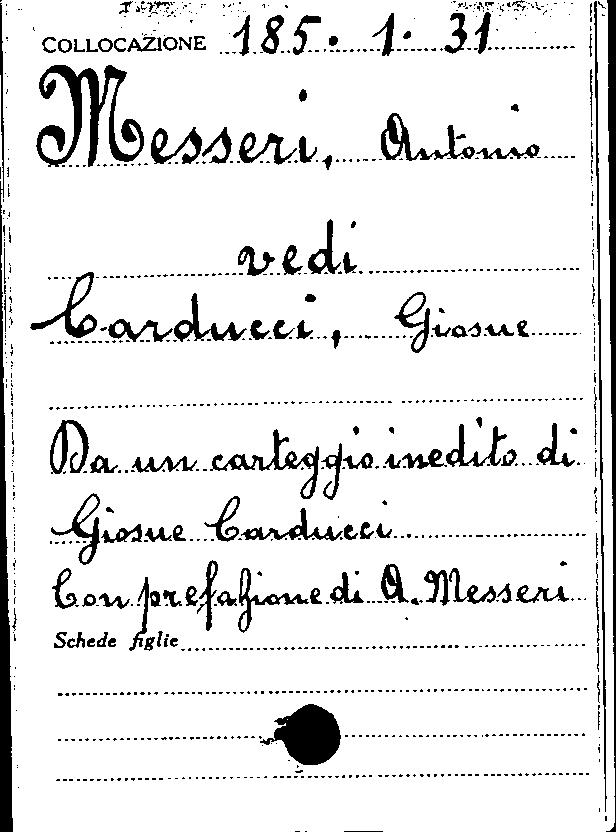 COLLOCAZIONE 185. 1. 31
Messeri, Antonio
vedi
Carducci, Giosue
Da un carteggio inedito di
Giosue Carducci
Con prefazione di A. Messeri
Schede figlie